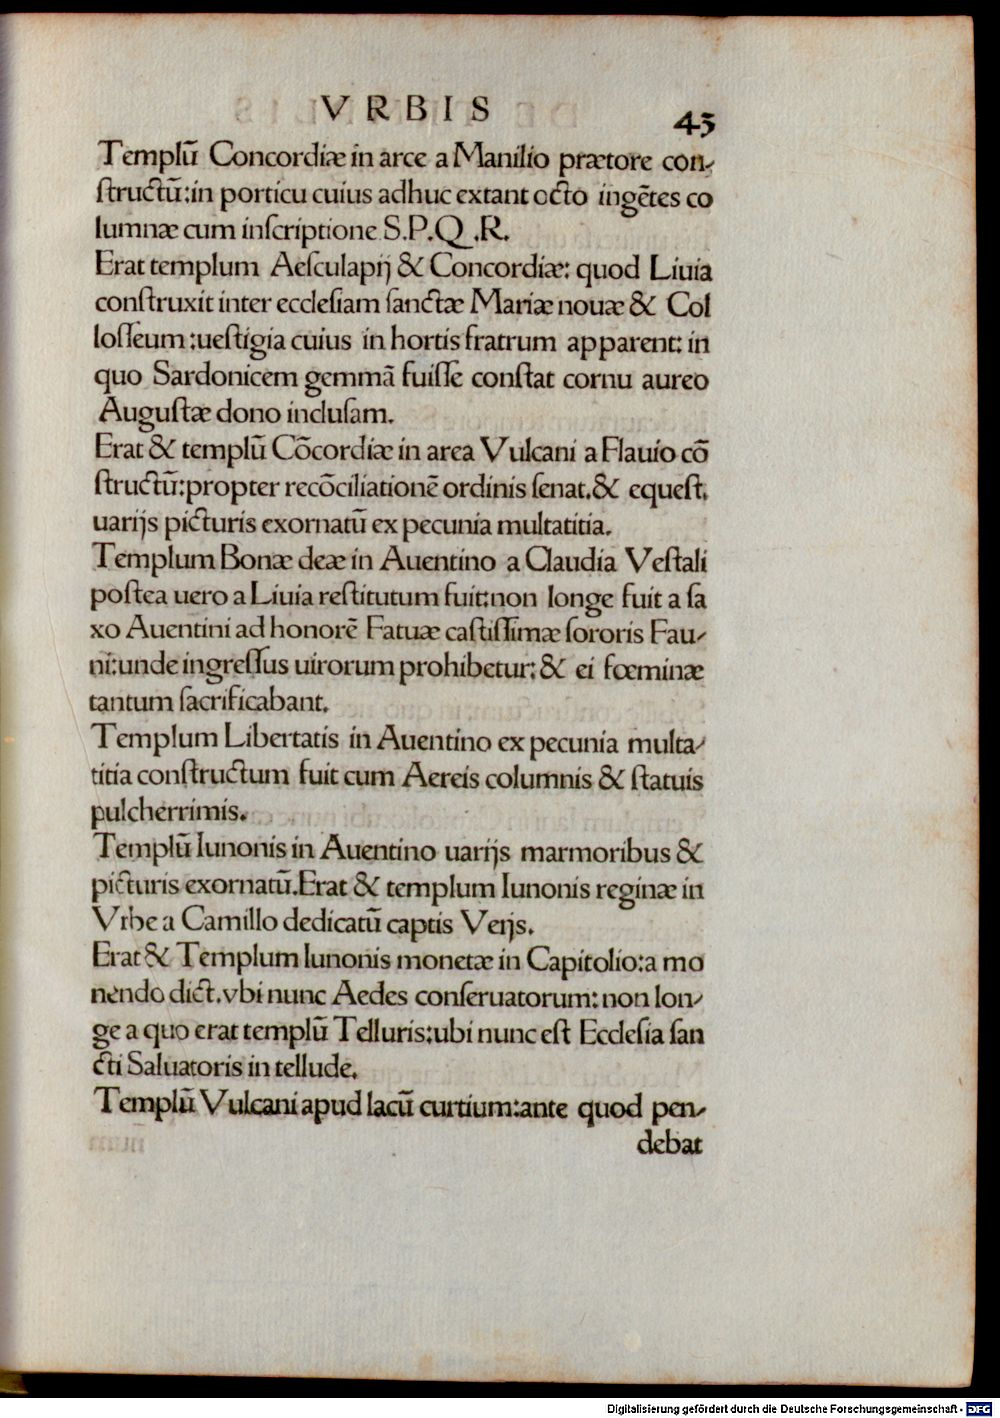 VRBIS
43
Templū Concordiæ in arce a Manilio prætore con-
ſtructū:in porticu cuius adhuc extant octo ingētes co
lumnæ cum inſcriptione S.P.Q.R.
Erat templum Aeſculapij & Concordiæ: quod Liuia
conſtruxit inter eccleſiam ſanctæ Mariæ nouæ & Col
loſſeum:ueſtigia cuius in hortis fratrum apparent: in
quo Sardonicem gemmā fuiſſe conſtat cornu aureo
Auguſtæ dono incluſam.
Erat & templū Cōcordiæ in area Vulcani a Flauio cō
ſtructū:propter recōciliationē ordinis ſenat.& equeſt.
uarijs picturis exornatū ex pecunia multatitia.
Templum Bonæ deæ in Auentino a Claudia Veſtali
poſtea uero a Liuia reſtitutum fuit:non longe fuit a ſa
xo Auentini ad honorē Fatuæ caſtiſſimæ ſororis Fau-
ni:unde ingreſſus uirorum prohibetur: & ei fœminæ
tantum ſacrificabant.
Templum Libertatis in Auentino ex pecunia multa-
titia conſtructum fuit cum Aereis columnis & ſtatuis
pulcherrimis.
Templū Iunonis in Auentino uarijs marmoribus &
picturis exornatū.Erat & templum Iunonis reginæ in
Vrbe a Camillo dedicatū captis Veijs.
Erat & Templum Iunonis monetæ in Capitolio:a mo
nendo dict.vbi nunc Aedes conſeruatorum: non lon-
ge a quo erat templū Telluris:ubi nunc eſt Eccleſia ſan
cti Saluatoris in tellude.
Templū Vulcani apud lacū curtium:ante quod pen-
debat
Digitalisierung gefördert durch die Deutsche Forschungsgemeinschaft - DFG